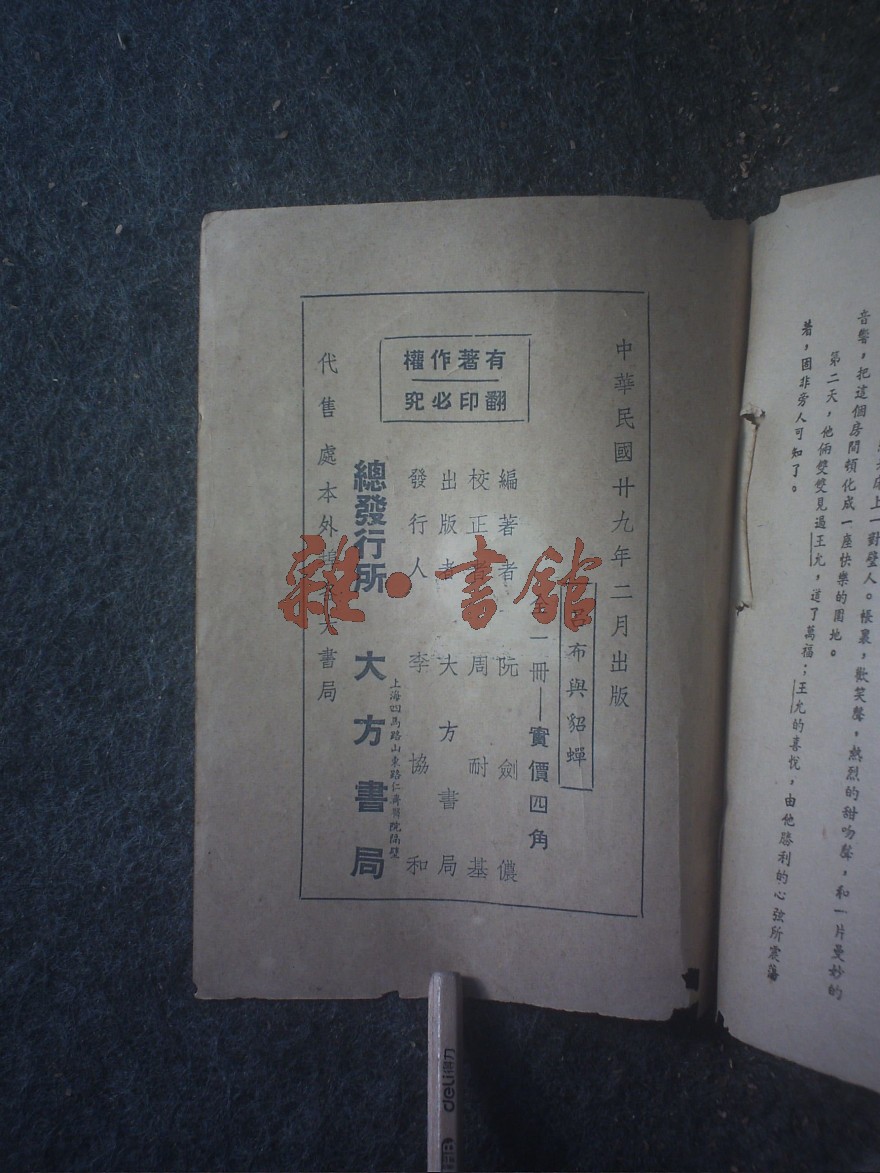 音響，把這個房間頓化成一座快樂的園地。
第二天，他倆雙雙見過王允，道了萬福；王允的喜悅，由他勝利的心強所震蕩
著，固非旁人可知了。
床上一對璧人。帳裏，歡笑聲，熱烈的甜吻聲，和一片曼妙的
中華民國廿九年二月出版
呂布與貂蟬
一冊——實價四角
編著者 阮劍儂
校正者 周耐基
出版者 大方書局
發行人 李協和
有著作權
翻印必究
總發行所 大方書局
上海四馬路山東路仁濟醫院隔壁
代售處本外埠各大書局
雜·書館
deli得力